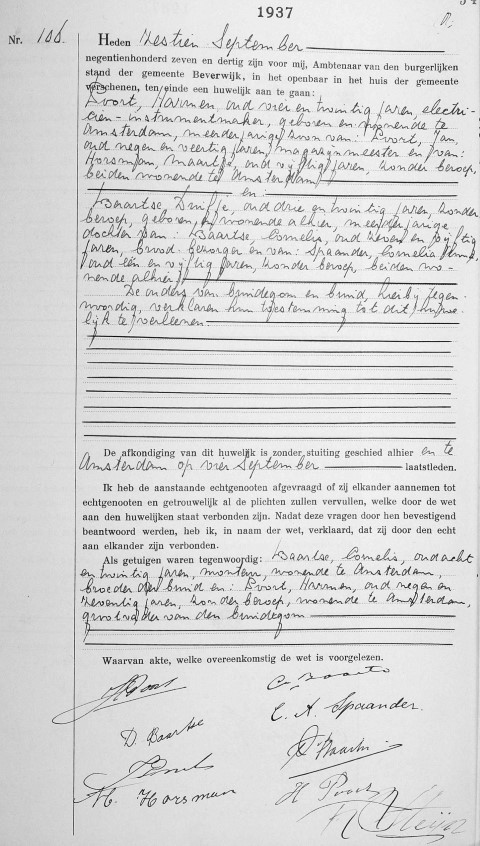 1937
Nr. 166.
Heden zestien September
negentienhonderd zeven en dertig zijn voor mij, Ambtenaar van den burgerlijken
stand der gemeente Beverwijk, in het openbaar in het huis der gemeente
verschenen, ten einde een huwelijk aan te gaan:
Poort, Harmen, oud vier en twintig jaren, electri-
cien-instrumentmaker, geboren en wonende te
Amsterdam, meerderjarige zoon van: Poort, Jan,
oud negen en veertig jaren, magazijnmeester en van:
Horsman, Maartje, oud vijftig jaren, zonder beroep,
beiden wonende te Amsterdam
en:
Baartse, Duifje, oud drie en twintig jaren, zonder
beroep, geboren en wonende alhier, meerderjarige
dochter van: Baartse, Cornelis, oud zeven en vijftig
jaren, brood-bezorger en van: Spaander, Cornelia
oud één en vijftig jaren, zonder beroep, beiden wo-
nende alhier
De ouders van bruidegom en bruid, hierbij tegen-
woordig, verklaren hun toestemming tot dit huwe-
lijk te verleenen
De afkondiging van dit huwelijk is zonder stuiting geschied alhier en te
Amsterdam op vier September laatstleden.
Ik heb de aanstaande echtgenooten afgevraagd of zij elkander aannemen tot
echtgenooten en getrouwelijk al de plichten zullen vervullen, welke door de wet
aan den huwelijken staat verbonden zijn. Nadat deze vragen door hen bevestigend
beantwoord werden, heb ik, in naam der wet, verklaard, dat zij door den echt
aan elkander zijn verbonden.
Als getuigen waren tegenwoordig: Baartse, Cornelis, oud acht
en twintig jaren, monteur, wonende te Amsterdam,
broeder der bruid en: Poort, Harmen, oud negen en
zeventig jaren, zonder beroep, wonende te Amsterdam,
grootvader van den bruidegom
Waarvan akte, welke overeenkomstig de wet is voorgelezen.
H Poort
C. Baartse
D. Baartse
C. A. Spaander.
J Poort
C. Baartse
M. Horsman
H Poort